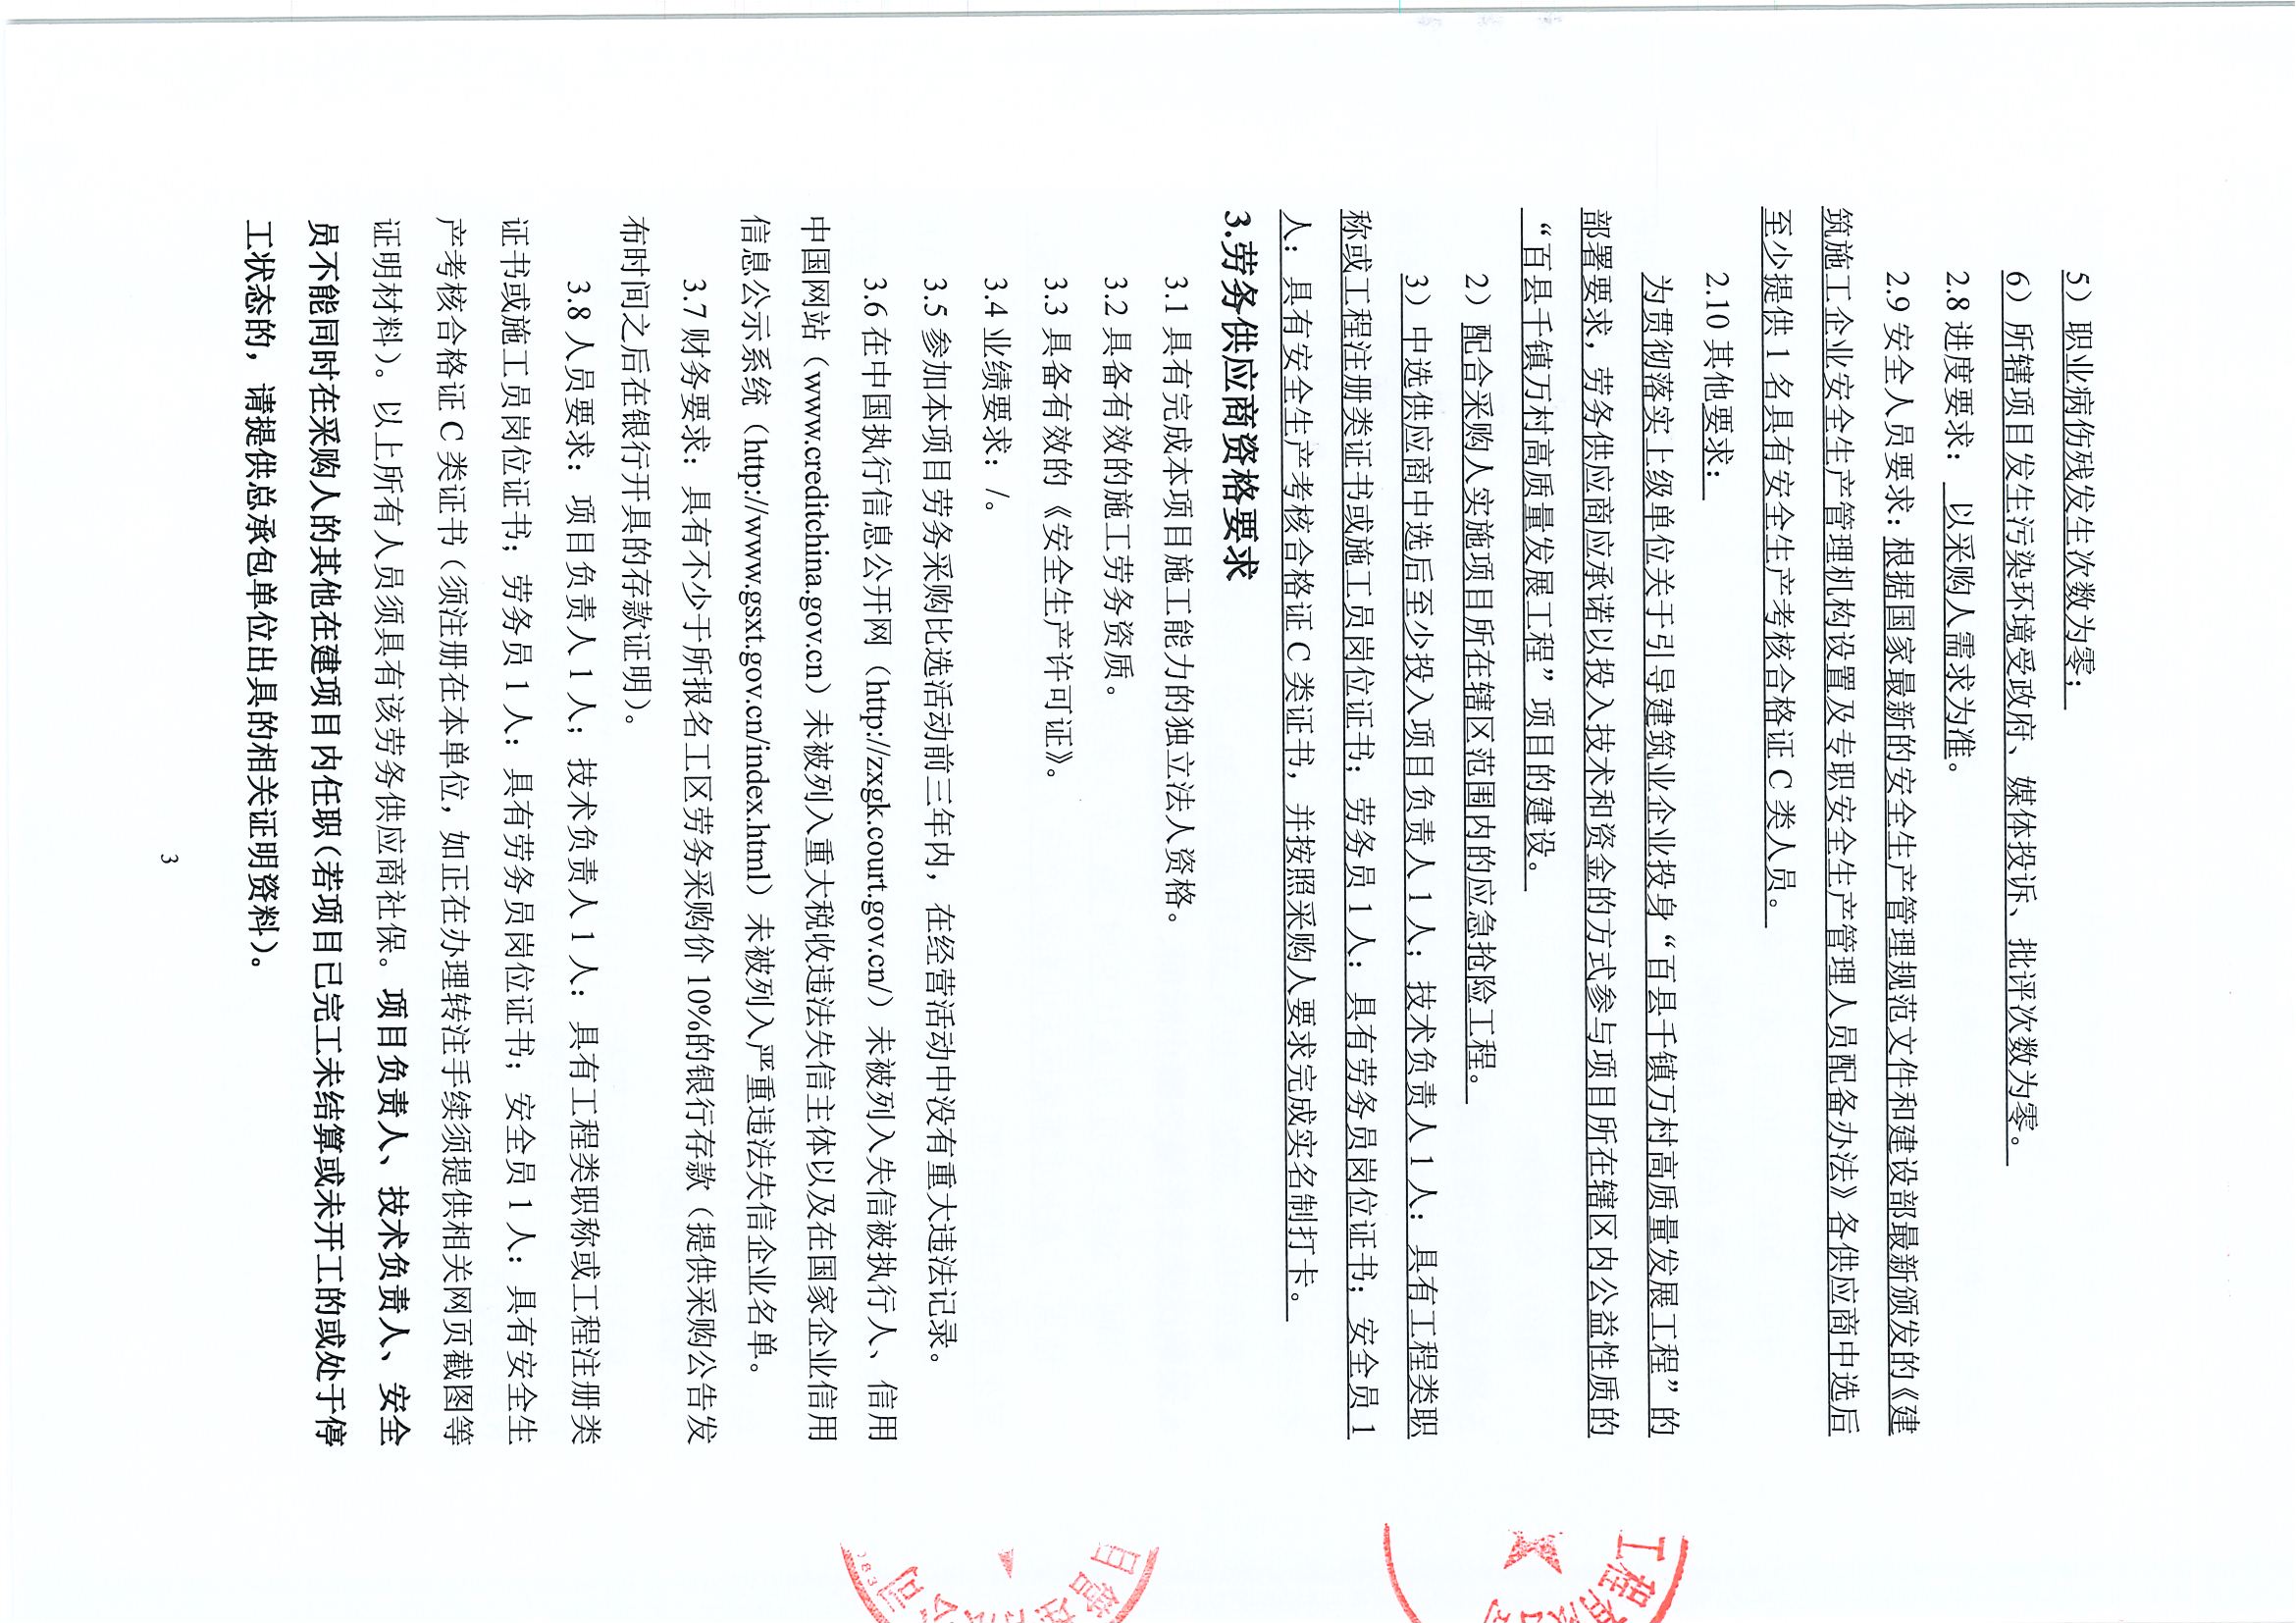 5）职业病伤残发生次数为零；
6）所辖项目发生污染环境受政府、媒体投诉、批评次数为零。
2.8 进度要求：以采购人需求为准。
2.9 安全人员要求：根据国家最新的安全生产管理规范文件和建设部最新颁发的《建
筑施工企业安全生产管理机构设置及专职安全生产管理人员配备办法》各供应商中选后
至少提供 1 名具有安全生产考核合格证 C 类人员。
2.10 其他要求：
为贯彻落实上级单位关于引导建筑业企业投身“百县千镇万村高质量发展工程”的
部署要求，劳务供应商应承诺以投入技术和资金的方式参与项目所在辖区内公益性质的
“百县千镇万村高质量发展工程”项目的建设。
2）配合采购人实施项目所在辖区范围内的应急抢险工程。
3）中选供应商中选后至少投入项目负责人 1 人；技术负责人 1 人：具有工程类职
称或工程注册类证书或施工员岗位证书；劳务员 1 人：具有劳务员岗位证书；安全员 1
人：具有安全生产考核合格证 C 类证书，并按照采购人要求完成实名制打卡。
3.劳务供应商资格要求
3.1 具有完成本项目施工能力的独立法人资格。
3.2 具备有效的施工劳务资质。
3.3 具备有效的《安全生产许可证》。
3.4 业绩要求：/。
3.5 参加本项目劳务采购比选活动前三年内，在经营活动中没有重大违法记录。
3.6 在中国执行信息公开网（http://zxgk.court.gov.cn/）未被列入失信被执行人、信用
中国网站（www.creditchina.gov.cn）未被列入重大税收违法失信主体以及在国家企业信用
信息公示系统（http://www.gsxt.gov.cn/index.html）未被列入严重违法失信企业名单。
3.7 财务要求：具有不少于所报名工区劳务采购价 10%的银行存款（提供采购公告发
布时间之后在银行开具的存款证明）。
3.8 人员要求：项目负责人 1 人；技术负责人 1 人：具有工程类职称或工程注册类
证书或施工员岗位证书；劳务员 1 人：具有劳务员岗位证书；安全员 1 人：具有安全生
产考核合格证 C 类证书（须注册在本单位，如正在办理转注手续须提供相关网页截图等
证明材料）。以上所有人员须具有该劳务供应商社保。项目负责人、技术负责人、安全
员不能同时在采购人的其他在建项目内任职（若项目已完工未结算或未开工的或处于停
工状态的，请提供总承包单位出具的相关证明资料）。
3
工程有限公司
目管理有限公司